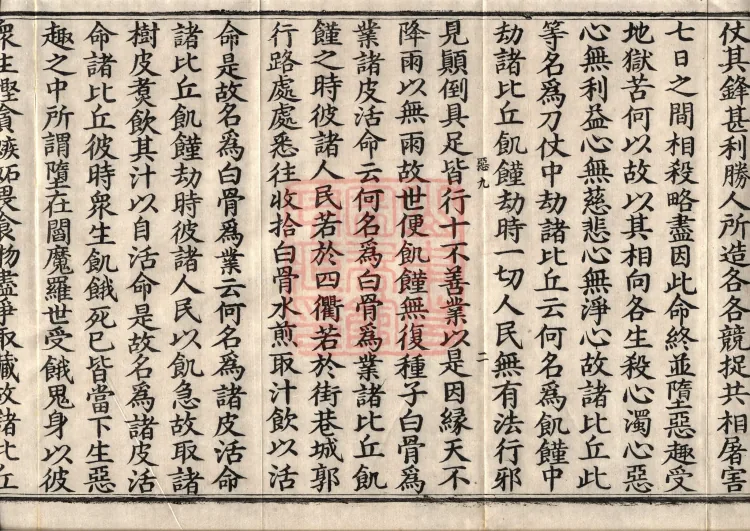 仗其鋒甚利勝人所造各各競捉共相屠害
七日之間相殺略盡因此命終並墮惡趣受
地獄苦何以故以其相向各生殺心濁心惡
心無利益心無慈悲心無淨心故諸比丘此
等名爲刀仗中劫諸比丘云何名爲飢饉中
劫諸比丘飢饉劫時一切人民無有法行邪
惡九
二
見顛倒具足皆行十不善業以是因緣天不
降雨以無雨故世便飢饉無復種子白骨爲
業諸皮活命云何名爲白骨爲業諸比丘飢
饉之時彼諸人民若於四衢若於街巷城郭
行路處處悉往收拾白骨水煎取汁飲以活
命是故名爲白骨爲業云何名爲諸皮活命
諸比丘飢饉劫時彼諸人民以飢急故取諸
樹皮煮飲其汁以自活命是故名爲諸皮活
命諸比丘彼時衆生飢餓死已皆當下生惡
趣之中所謂墮在閻魔羅世受餓鬼身以彼
衆生慳貪嫉妬畏食物盡爭取藏故諸比丘